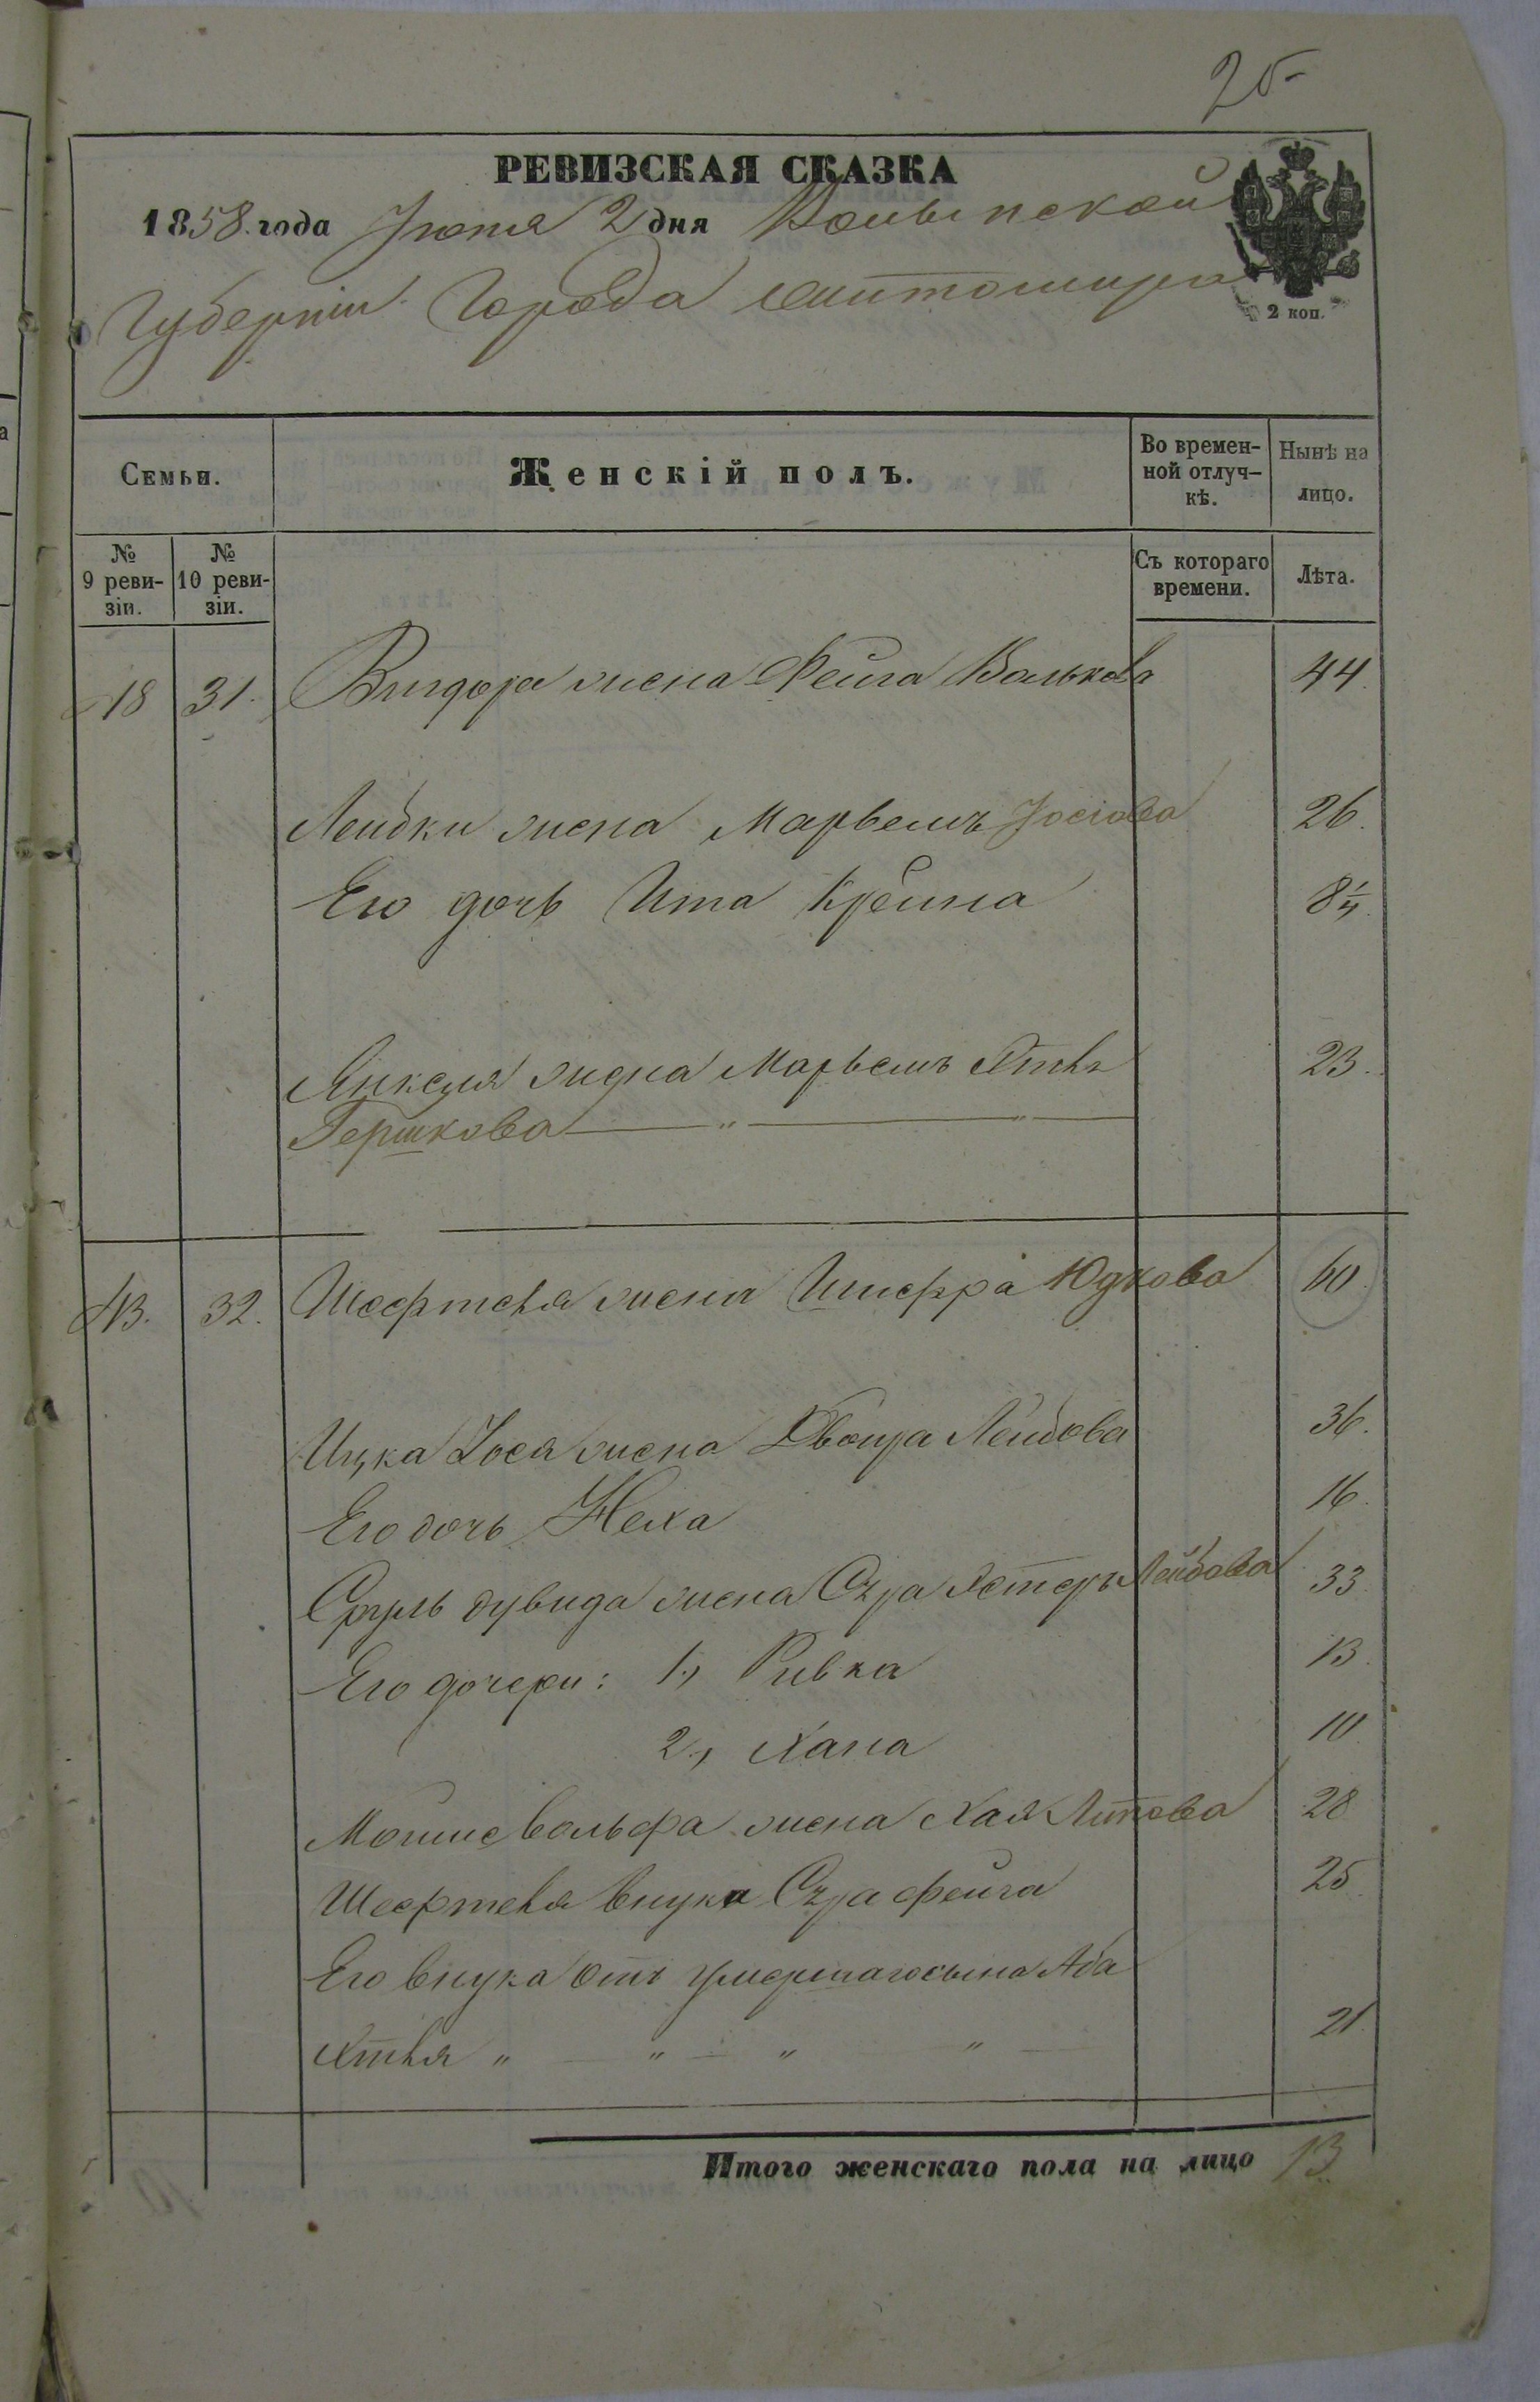 25
РЕВИЗСКАЯ СКАЗКА
1858 года Іюня 2 дня Волынской
Губерніи Города Житомира
2 коп.
Семьи.
Женскій полъ.
Во времен-
ной отлуч-
кѣ.
Нынѣ на
лицо.
№
9 реви-
зіи.
№
10 реви-
зіи.
Съ котораго
времени.
Лѣта.
18 31. Вигдора жена Фейга Волькова 44.
Лейбки жена Марьемъ Іосіова 26.
Его дочь Ита Крейна 8 1/4.
Янкеля жена Марьемъ 23.
Гершкова — " — " —
32. жена Юдкова 60.
Ицка Іося жена Двойра Лейбова 36.
Его дочь Неха 16.
Сруль Дувида жена Сура Эстеръ Лейбова 33.
Его дочери: 1, Ривка 13.
2, Хана 10
Мошке Вольфа жена Хая 28
внука Сура Фейга 25.
Его внука отъ умершаго сына Аба
" — " — " " — 21.
Итого женскаго пола на лицо 13.